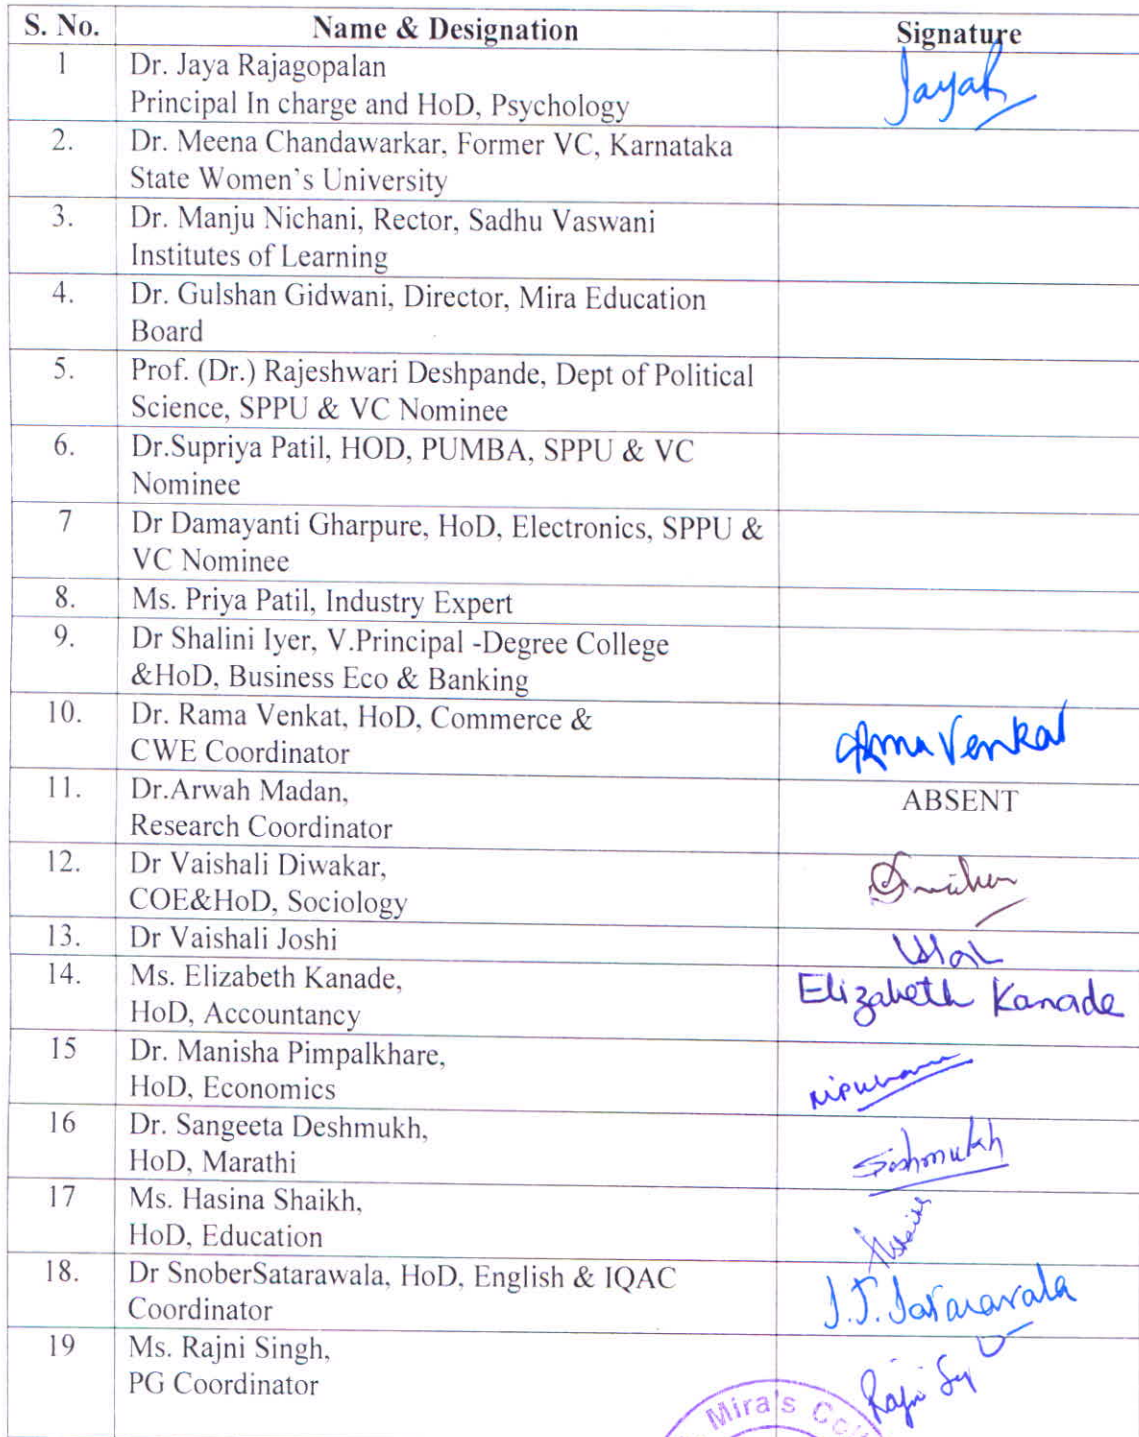 S. No. Name & Designation Signature
1 Dr. Jaya Rajagopalan
Principal In charge and HoD, Psychology JayaR
2. Dr. Meena Chandawarkar, Former VC, Karnataka
State Women's University
3. Dr. Manju Nichani, Rector, Sadhu Vaswani
Institutes of Learning
4. Dr. Gulshan Gidwani, Director, Mira Education
Board
5. Prof. (Dr.) Rajeshwari Deshpande, Dept of Political
Science, SPPU & VC Nominee
6. Dr.Supriya Patil, HOD, PUMBA, SPPU & VC
Nominee
7 Dr Damayanti Gharpure, HoD, Electronics, SPPU &
VC Nominee
8. Ms. Priya Patil, Industry Expert
9. Dr Shalini Iyer, V.Principal -Degree College
&HoD, Business Eco & Banking
10. Dr. Rama Venkat, HoD, Commerce &
CWE Coordinator Venkat
11. Dr.Arwah Madan, ABSENT
Research Coordinator
12. Dr Vaishali Diwakar,
COE&HoD, Sociology
13. Dr Vaishali Joshi
14. Ms. Elizabeth Kanade, Elizabeth Kanade
HoD, Accountancy
15 Dr. Manisha Pimpalkhare,
HoD, Economics
16 Dr. Sangeeta Deshmukh,
HoD, Marathi
17 Ms. Hasina Shaikh,
HoD, Education
18. Dr SnoberSatarawala, HoD, English & IQAC
Coordinator
19 Ms. Rajni Singh,
PG Coordinator
Mira's